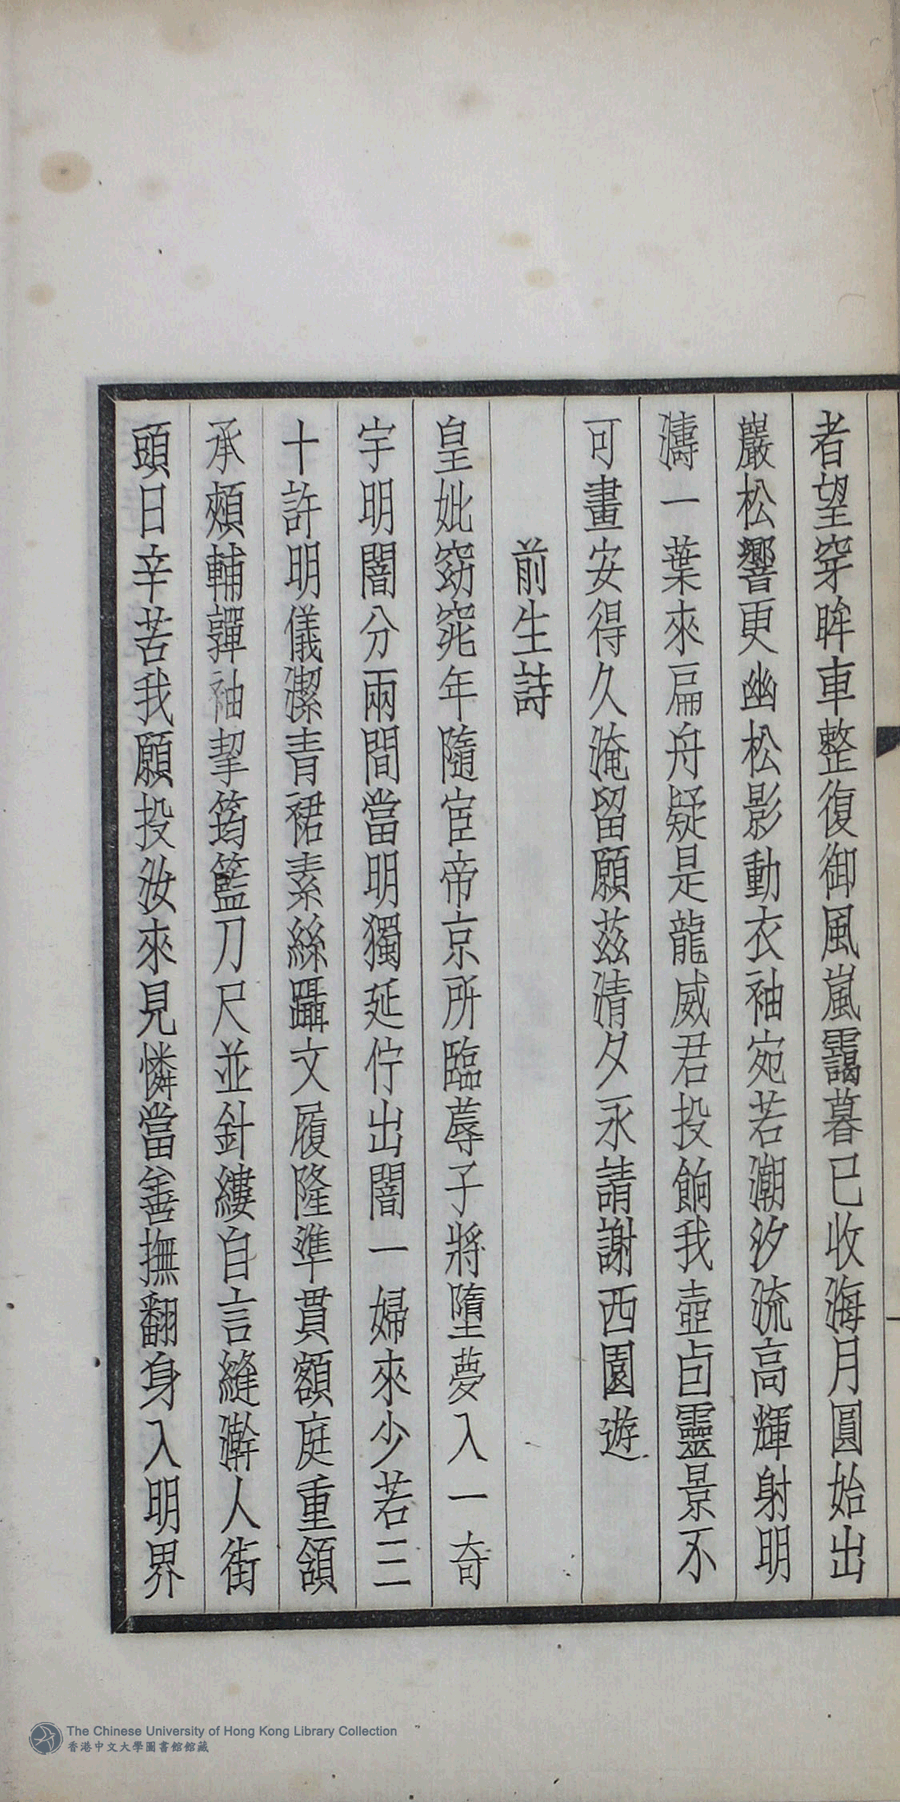 者望穿眸車整復御風嵐靄暮已收海月圓始出
巖松響更幽松影動衣袖宛若潮汐流高輝射明
濤一葉來扁舟疑是龍威君投餉我壺卣靈景不
可畫安得久淹留願茲清夕永請謝西園遊
前生詩
皇妣窈窕年隨宦帝京所臨蓐子將墮夢入一奇
宇明闇分兩間當明獨延佇出闇一婦來少若三
十許明儀潔青裙素絲躡文履隆準貫額庭重頷
承頰輔嚲袖挈筠籃刀尺並針縷自言縫人街
頭日辛苦我願投汝來見憐當善撫翻身入明界
The Chinese University of Hong Kong Library Collection
香港中文大學圖書館館藏